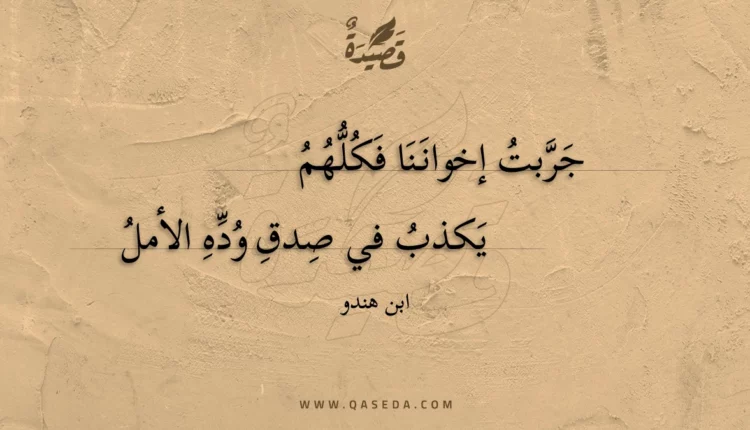 قَصِيْدَةٌ
جَرَّبتُ إخوانَنَا فَكُلُّهُمُ
يَكذبُ في صِدقِ وُدِّهِ الأملُ
ابن هندو
WWW.QASEDA.COM